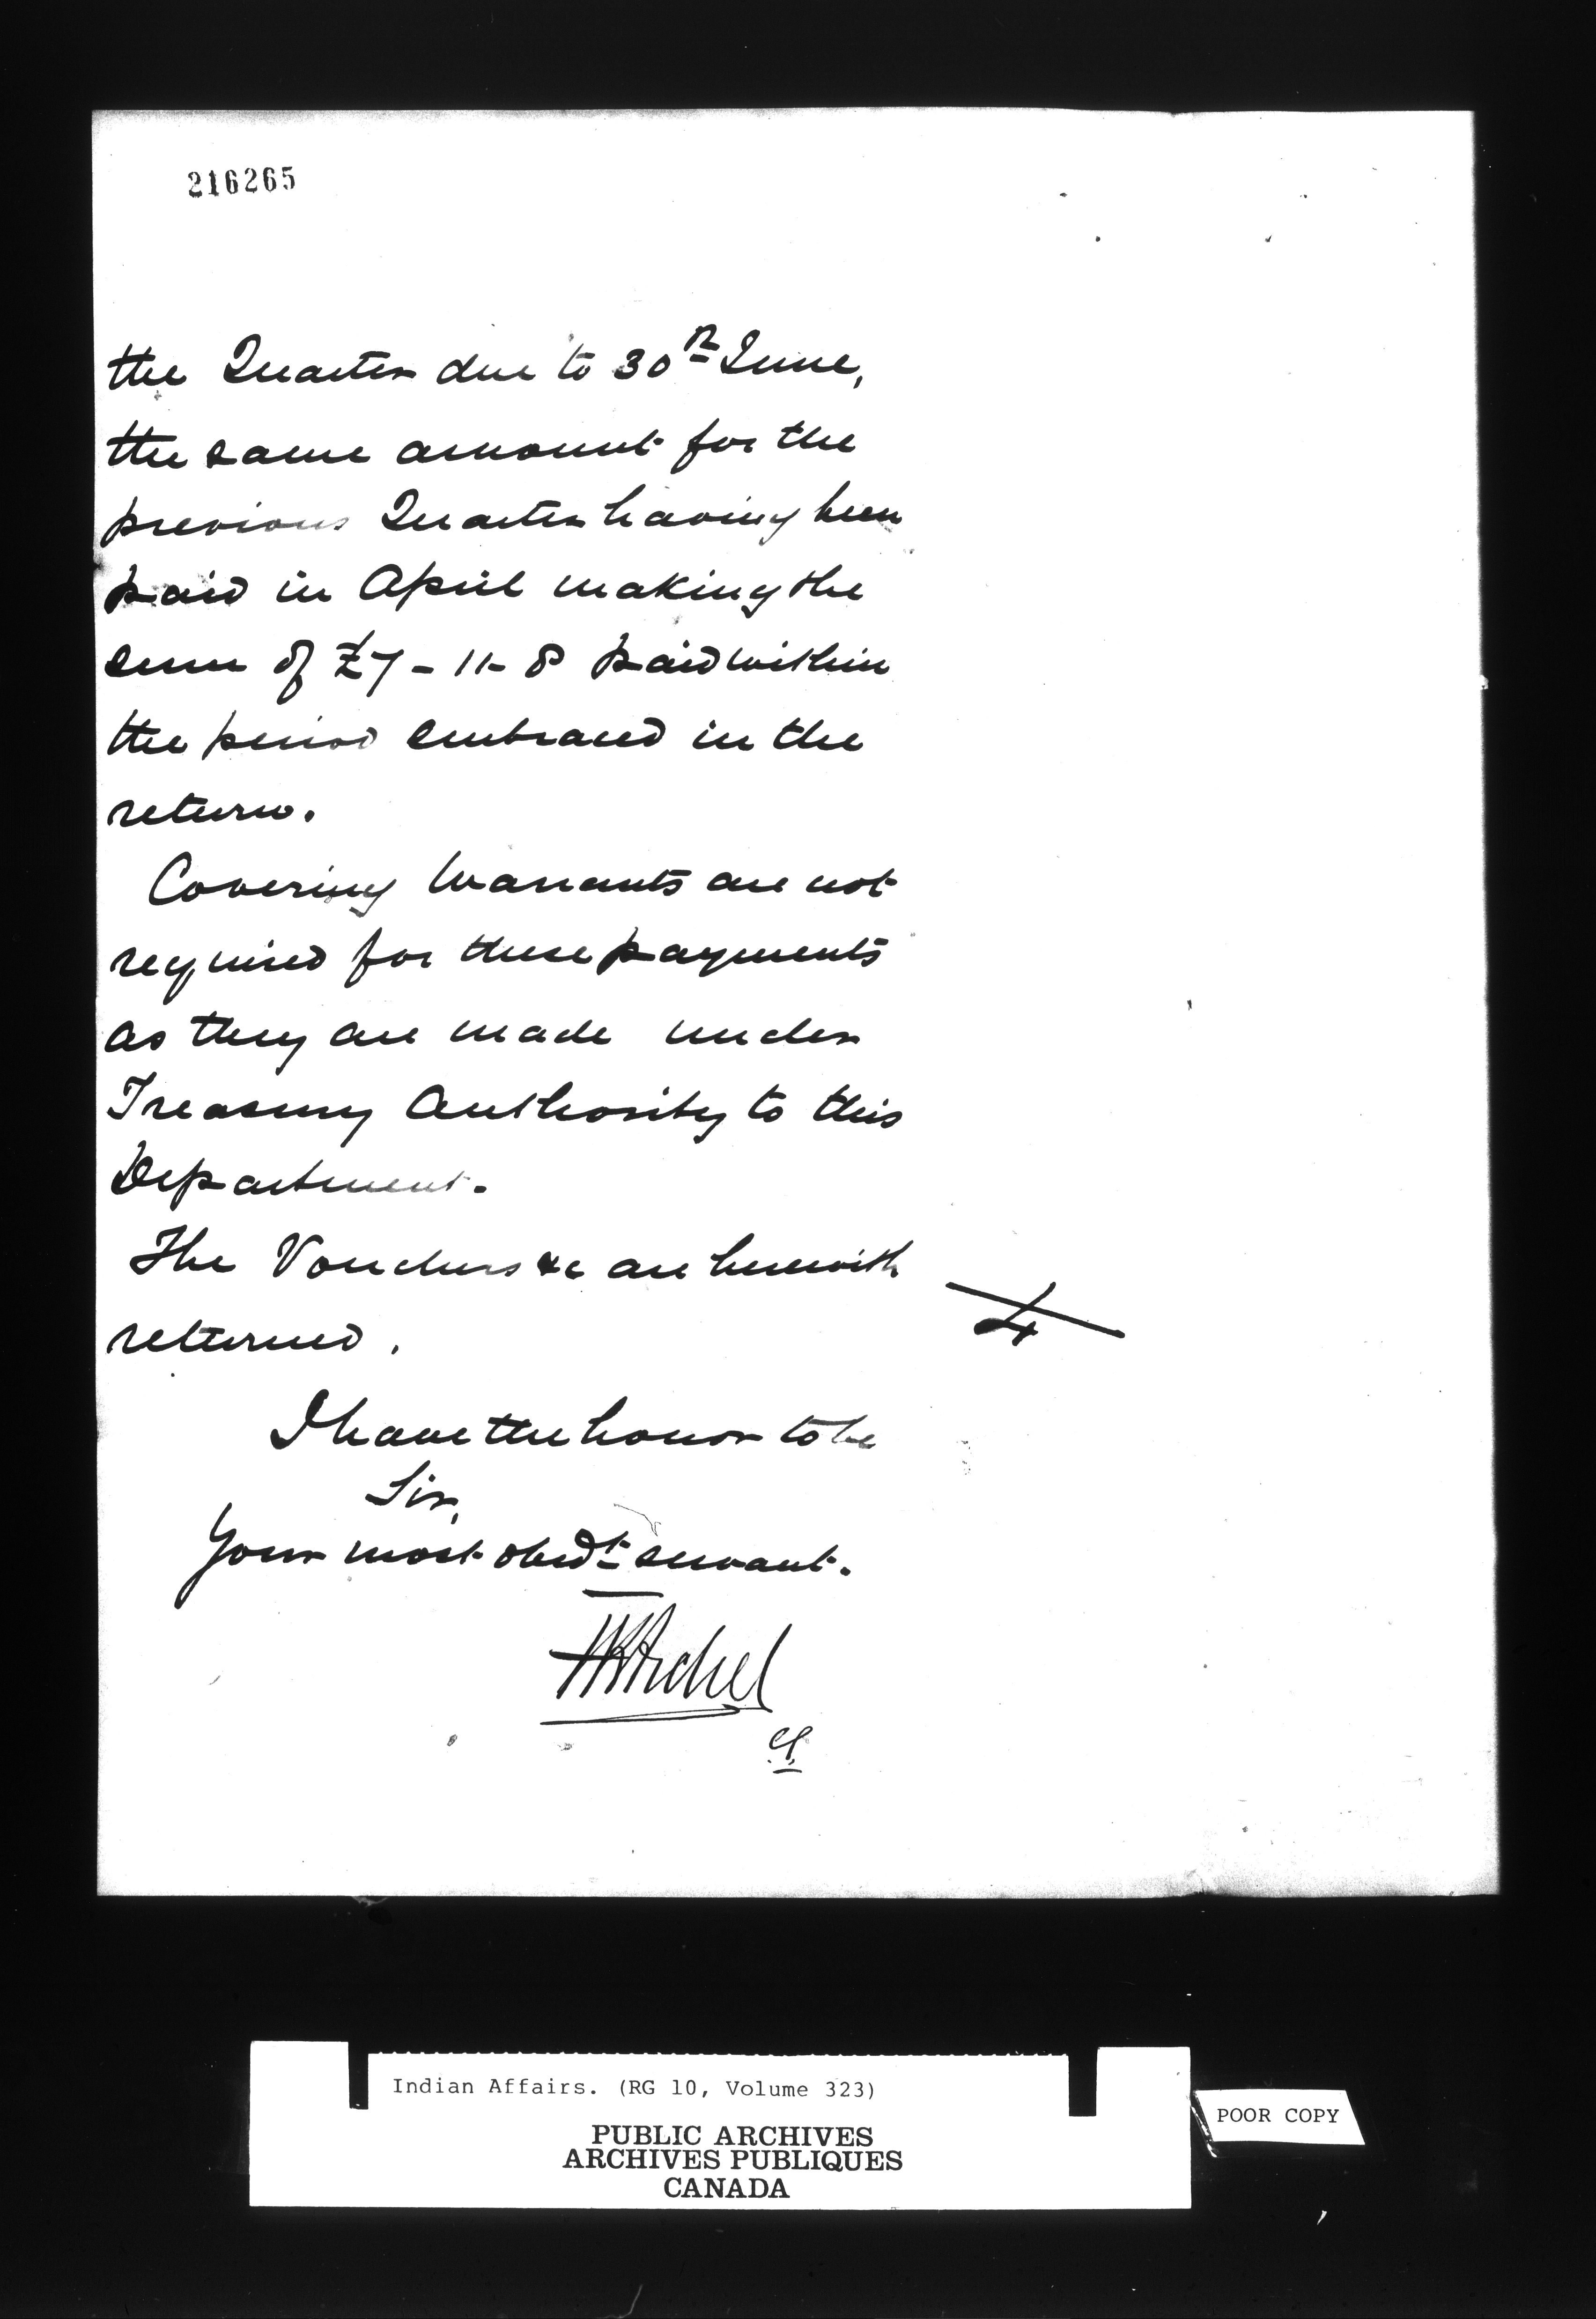 216265
the Quarter due to 30th June,
the same amount for the
previous Quarter having been
paid in April making the
sum of £7-11-8 paid within
the period embraced in the
return.
Covering Warrants are not
required for these payments
as they are made under
Treasury Authority to this
Department.
The Vouchers &c are herewith
returned.
4
I have the honor to be
Sir,
Your most obedt servant.
Indian Affairs. (RG 10, Volume 323)
PUBLIC ARCHIVES
ARCHIVES PUBLIQUES
CANADA
POOR COPY